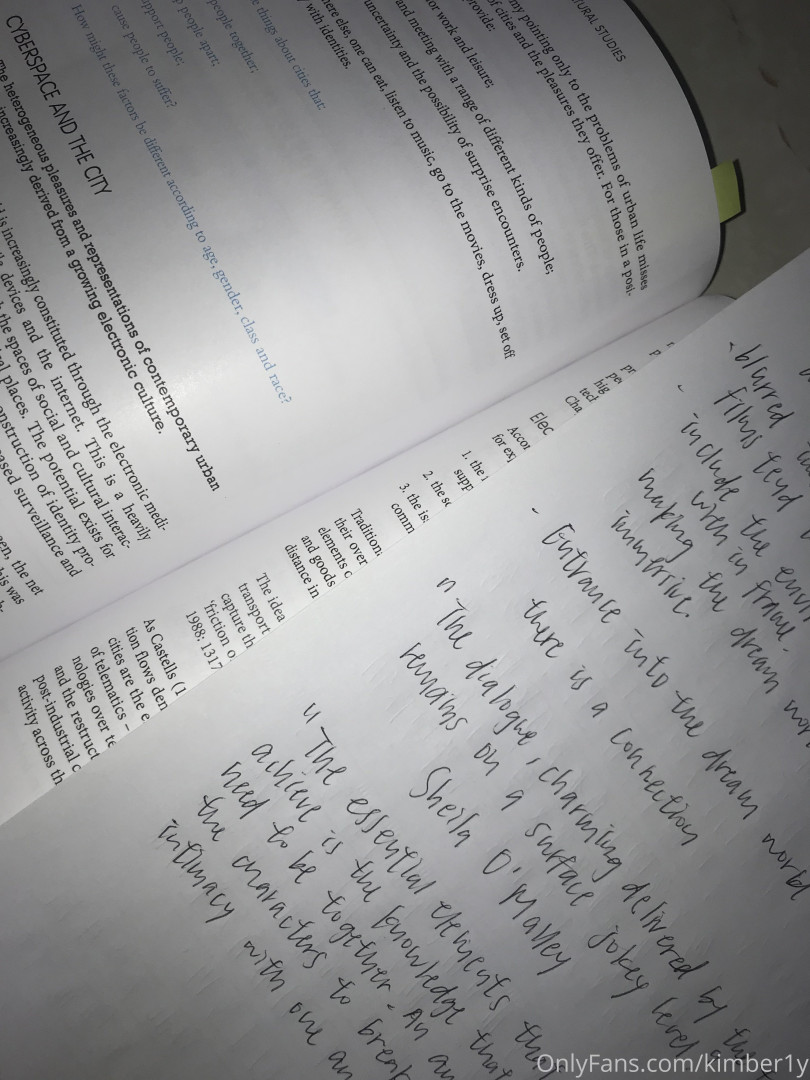 TURAL STUDIES
my pointing only to the problems of urban life misses
of cities and the pleasures they offer. For those in a posi-
provide:
or work and leisure;
and meeting with a range of different kinds of people;
uncertainty and the possibility of surprise encounters.
here else, one can eat, listen to music, go to the movies, dress up, set off
y with identities.
e things about cities that:
people together;
p people apart;
upport people;
cause people to suffer?
How might these factors be different according to age, gender, class and race?
CYBERSPACE AND THE CITY
The heterogeneous pleasures and representations of contemporary urban
increasingly derived from a growing electronic culture.
is increasingly constituted through the electronic medi-
devices and the internet. This is a heavily
the spaces of social and cultural interac-
places. The potential exists for
construction of identity pro-
ased surveillance and
een, the net
his was
Cha
Elec
Accor
for ex
1. the
supp
2. the se
3. the is
comm
Tradition
their over
elements o
and goods
distance in
The idea
transport
capture th
'friction o
1988: 1317
As Castells (1
tion flows den
cities are the e
of telematics –
nologies over te
and the restruct
post-industrial c
activity across th
- blurred
films tend
- include the envir
with in frame.
making the dream wor
immersive.
- Entrance into the dream world
there is a connection
" The dialogue, charming delivered by
remains on a surface jokey level
Sheila O'Malley
" The essential elements
achieve is the knowledge that
need to be together. An
the characters to break
intimacy with one an
OnlyFans.com/kimber1y